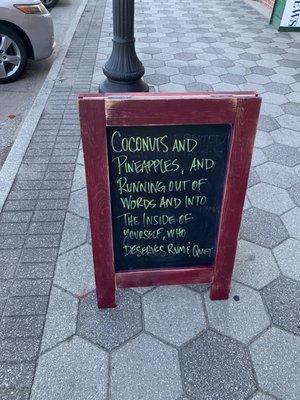 NEWS
COCONUTS AND
PINEAPPLES, AND
RUNNING OUT OF
WORDS AND INTO
THE INSIDE OF
YOURSELF, WHO
DESERVES RUM & QUIET